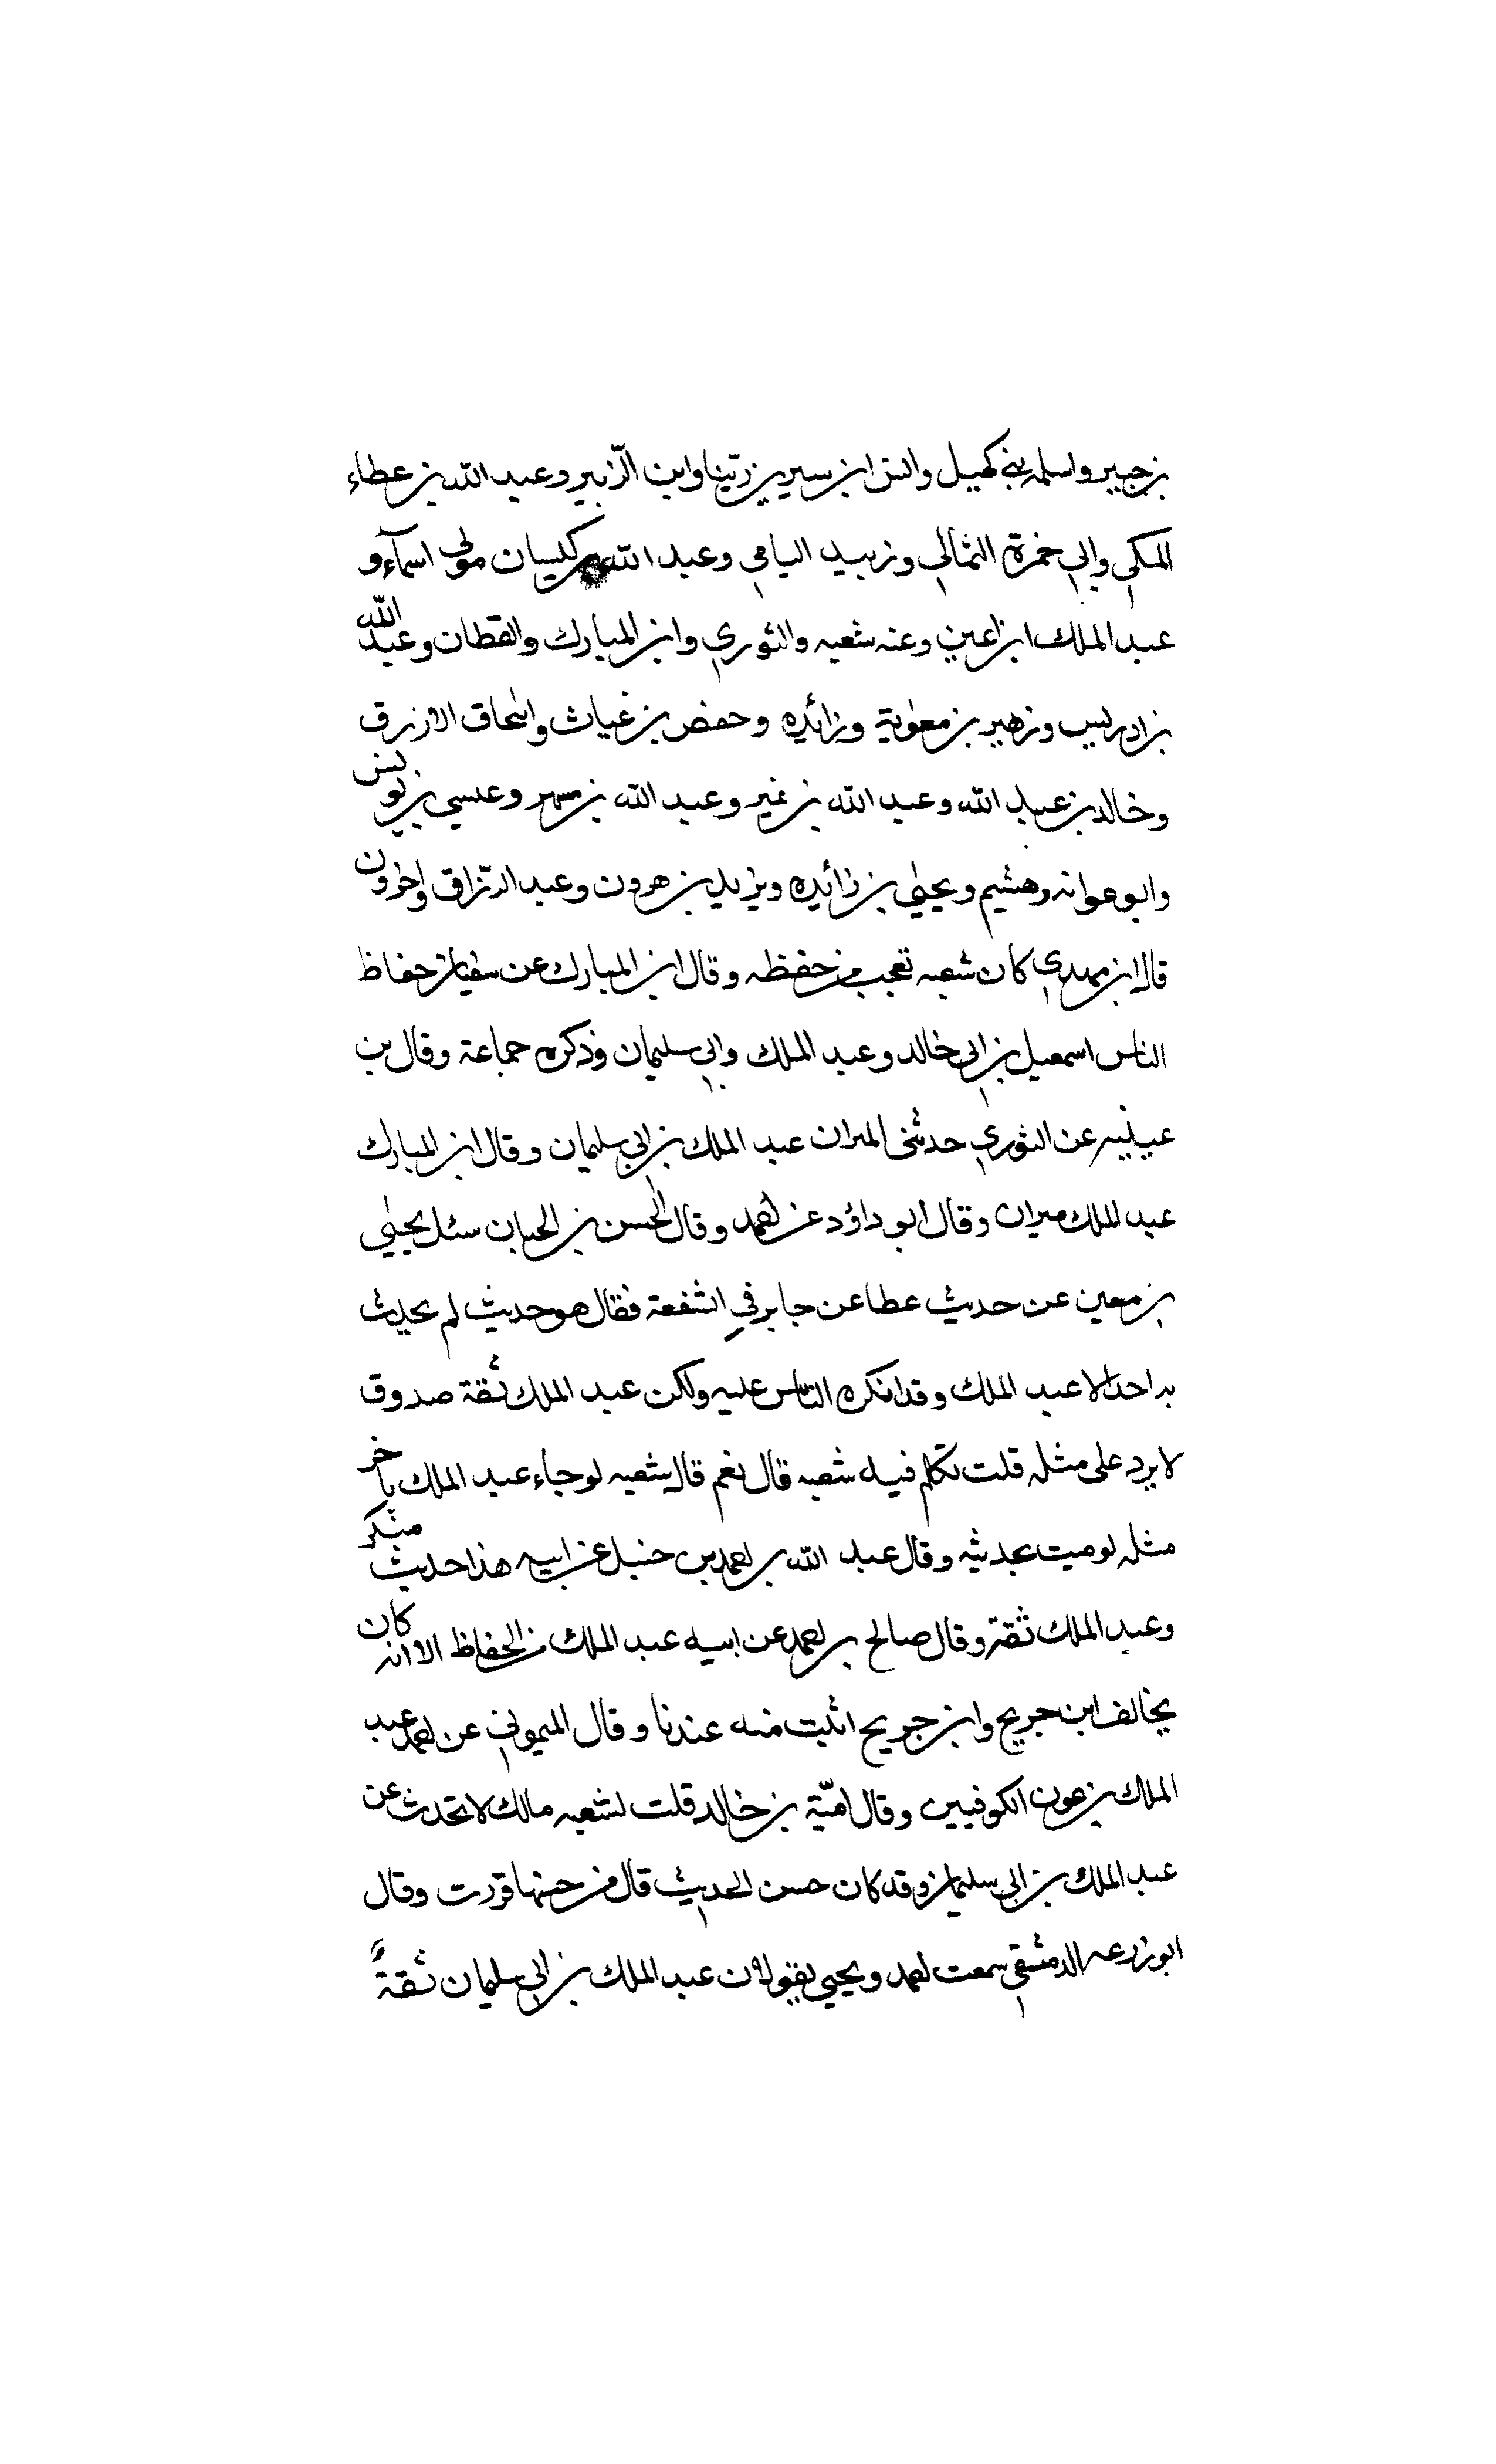 بن جبير واسلمه بنى كهيل وانس ابن سيرين وابن الزبير وعبد الله بن عطاء
المكي وابي خمزة الثمالي وزبيد اليامي وعبد الله بن كيسان مولى اسمآء و
عبد الملك ابن اعين وعنه شعبه والثوري وابن المبارك والقطان وعبد الله
بن ادريس وزهير بن معوية وزائده وحفص بن غياث واسحاق الازرق
وخالد بن عبد الله وعبد الله بن نمير وعبد الله بن مسهر وعيسي بن يونس
وابوعوانه وهشيم ويحيى بن زائده ويزيد بن هرون وعبد الرزاق واخرون
قال ابن مهدي كان شعبه تعجب من حفظه وقال ابن المبارك عن سفين حفاظ
الناس اسمعيل بن ابي خالد وعبد الملك وابي سليمان وذكره جماعة وقال بن
عيينه عن الثوري حدثنى الميزان عبد الملك بن ابي سليمان وقال ابن المبارك
عبد الملك ميزان وقال ابو داؤد عن احمد وقال الحسن بن الحبان سئل يحيى
بن معين عن حديث عطا عن جابر في الشفعة فقال هو حديث لم يحدث
به احد الا عبد الملك وقد انكره الناس عليه ولكن عبد الملك ثقة صدوق
لا يرد على مثله قلت تكلم فيه شعبه قال نعم قال شعبه لو جاء عبد الملك باخر
مثله لوميت بحديثه وقال عبد الله بن احمد بن حنبل عن ابيه هذا حديث منكر
وعبد الملك ثقة وقال صالح بن احمد عن ابيه عبد الملك من الحفاظ الا انه كان
يخالف ابن جريح وابن جريح اثبت منه عندنا وقال الميموني عن احمد عبد
الملك من عيون الكوفيين وقال امية بن خالد قلت لشعبه مالك لا تحدث عن
عبد الملك بن ابي سليمان وقد كان حسن الحديث قال من حسنها فررت وقال
ابو زرعه الدمشقي سمعت احمد ويحيى يقولان عبد الملك بن ابي سليمان ثقة